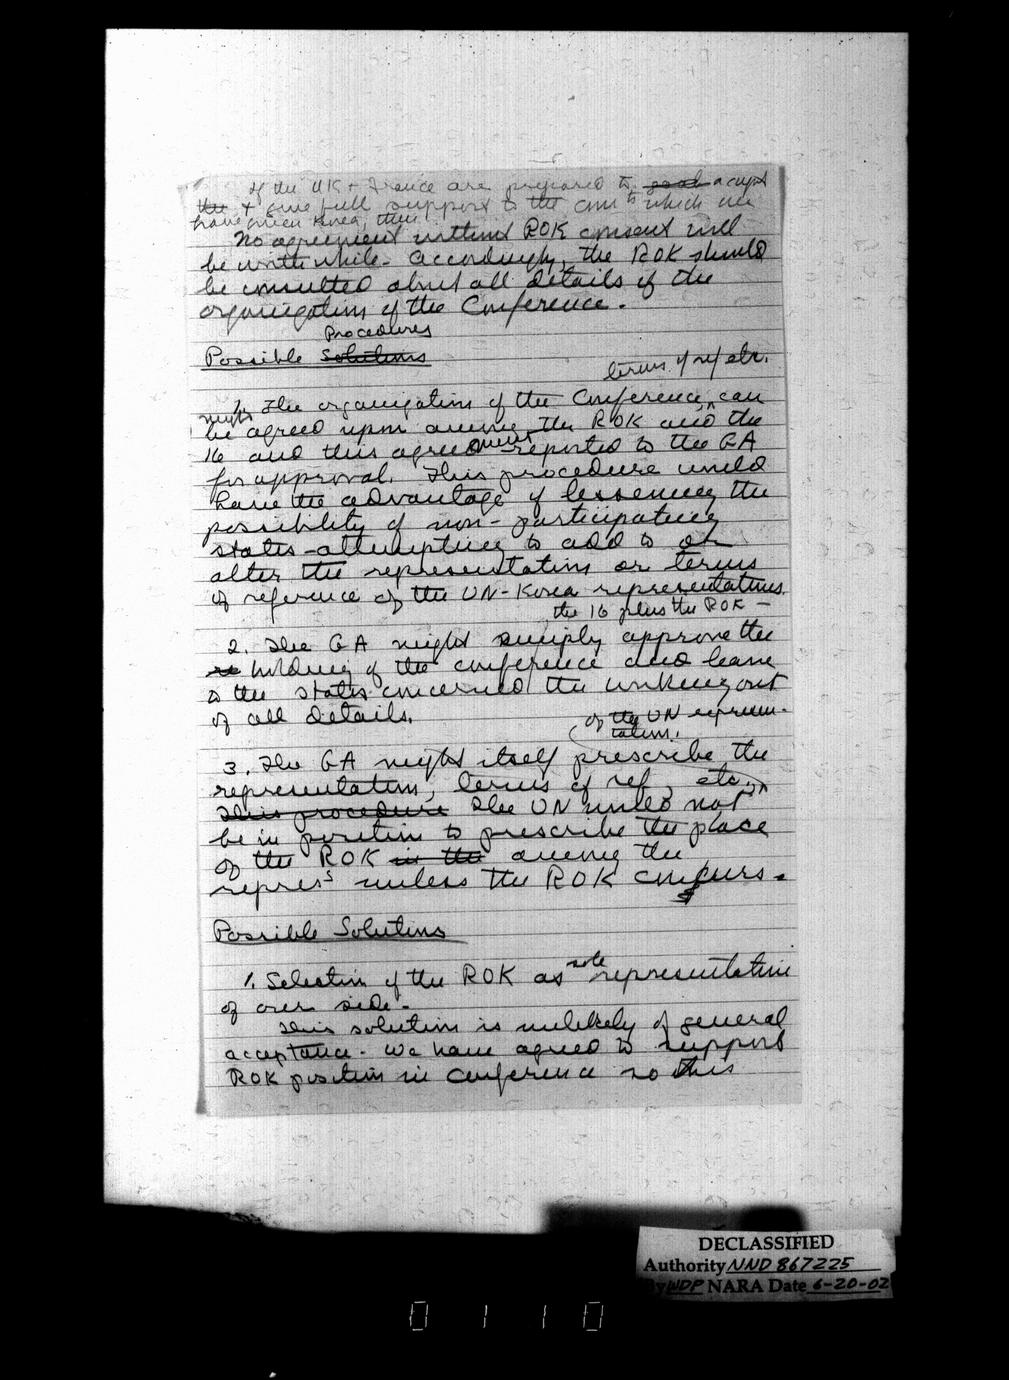 If the UK + France are prepared to accept
the + give full support to the com to which we
have given Korea, then
No agreement without ROK consent will
be worth while. Accordingly, the ROK should
be consulted about all details of the
organization of the Conference.
Procedures
Possible Solutions
terms of ref etc.
1. The organization of the Conference, can
might
be agreed upon among the ROK and the
16 and this agreement reported to the GA
for approval. This procedure would
have the advantage of lessening the
possibility of non-participating
states attempting to add to or
alter the representation or terms
of reference of the UN-Korea representatives.
the 16 plus the ROK —
2. The GA might simply approve the
holding of the conference and leave
to the states concerned the working out
of all details.
of the UN represen-
tation.
3. The GA might itself prescribe the
representation, terms of ref, etc.
This procedure The UN would not
be in position to prescribe the place
of the ROK in the among the
repres's unless the ROK concurs.
Possible Solutions
1. Selection of the ROK as sole representative
of our side.
This solution is unlikely of general
acceptance. We have agreed to support
ROK position in conference so this
DECLASSIFIED
Authority NND 867225
By WDP NARA Date 6-20-02
0 1 1 0